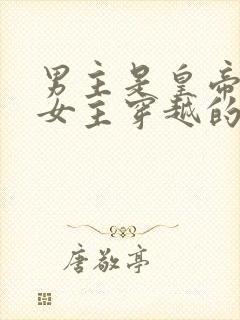 男主是皇帝
女主穿越的
唐敬亭